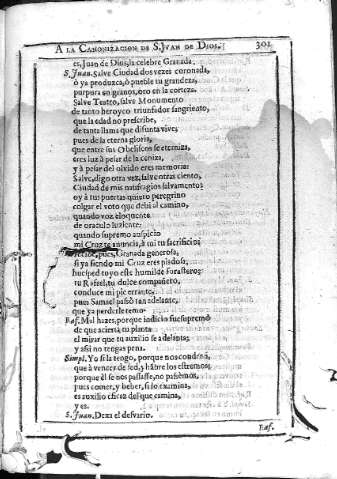 A LA CANONIZACION DE S. JVAN DE DIOS. 301
es, Juan de Dios, la celebre Granada.
S. Juan. Salve Ciudad dos vezes coronada,
ò ya produzca, ò pueble tu grandeza,
purpura en granos, oro en la corteza.
Salve Teatro, salve Monumento
de tanto heroyco triunfador sangriento,
que la edad no prescribe,
de tanta llama que difunta vive;
pues de la eterna gloria,
que entre sus Obeliscos se eterniza,
eres luz à pesar de la ceniza,
y à pesar del olvido eres memoria:
Salve, digo otra vez, salve otras ciento,
Ciudad de mis naufragios salvamento;
oy à tus puertas quiero peregrino
colgar el voto que debì al camino,
quando voz eloquente
de oraculo luziente:
quando supremo auspicio
mi Cruz te anuncia, à tu sacrificio;
recibe, pues, Granada generosa,
si ya siendo mi Cruz eres piadosa;
huesped tuyo este humilde forastero:
tu Rafael, tu dulce compañero,
conduce mi pie errante,
pues Samael passò tan adelante,
que ya perderle temo.
Raf. Mal hazes, porque indicio fue supremo
de que acierta tu planta
el mirar que tu auxilio se adelanta;
y assi no tengas pena.
Simpl. Yo si la tengo, porque nos condena,
que à vencer de sed, y hãbre los estremos;
porque èl se nos passasse, no passemos,
pues comer, y beber, si lo examina,
es auxilio eficaz del que camina,
y es.
S. Juan. Dexa el desvario.
Raf.